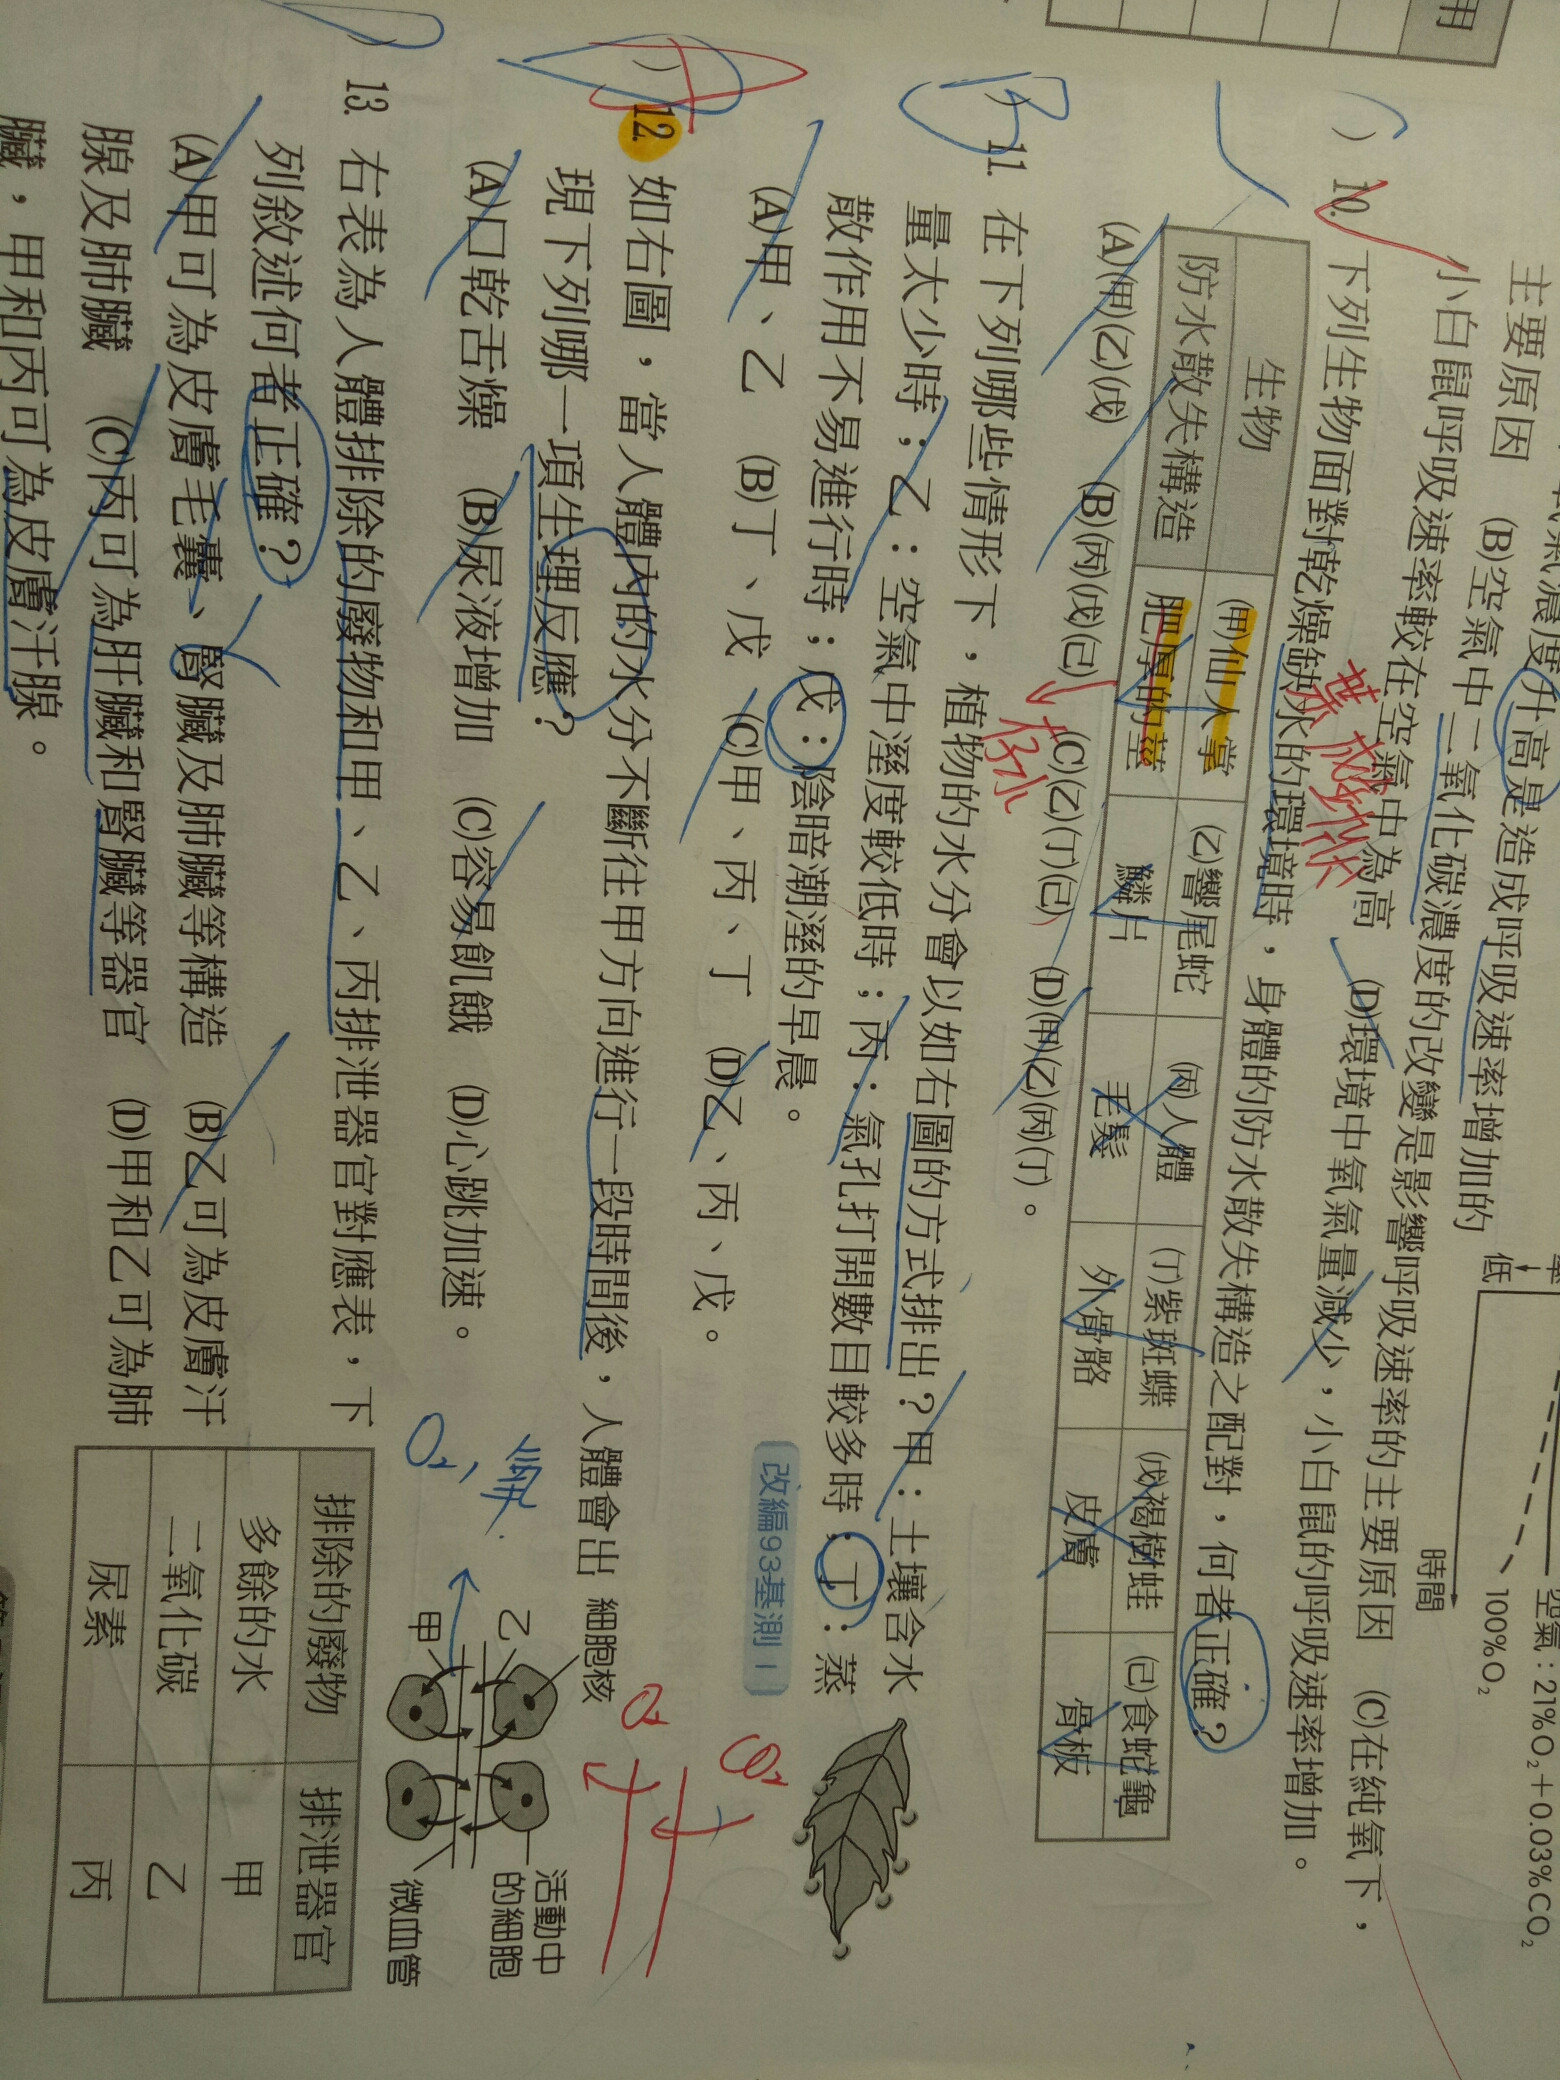 用
氣濃度升高是造成呼吸速率增加的
主要原因　(B)空氣中二氧化碳濃度的改變是影響呼吸速率的主要原因　(C)在純氧下，
小白鼠呼吸速率較在空氣中為高　(D)環境中氧氣量減少，小白鼠的呼吸速率增加。
低
時間
空氣：21%O₂＋0.03%CO₂
100%O₂
(　)10. 下列生物面對乾燥缺水的環境時，身體的防水散失構造之配對，何者正確？
生物　(甲)仙人掌　(乙)響尾蛇　(丙)人體　(丁)紫斑蝶　(戊)褐樹蛙　(己)食蛇龜
防水散失構造　肥厚的莖　鱗片　毛髮　外骨骼　皮膚　骨板
(A)(甲)(乙)(戊)　(B)(丙)(戊)(己)　(C)(乙)(丁)(己)　(D)(甲)(乙)(丙)(丁)。
存水
B
)11. 在下列哪些情形下，植物的水分會以如右圖的方式排出？甲：土壤含水
量太少時；乙：空氣中溼度較低時；丙：氣孔打開數目較多時；丁：蒸
散作用不易進行時；戊：陰暗潮溼的早晨。
改編93基測Ⅰ
(A)甲、乙　(B)丁、戊　(C)甲、丙、丁　(D)乙、丙、戊。
)12. 如右圖，當人體內的水分不斷往甲方向進行一段時間後，人體會出
現下列哪一項生理反應？
(A)口乾舌燥　(B)尿液增加　(C)容易飢餓　(D)心跳加速。
細胞核
乙
甲
活動中
的細胞
微血管
O₂，氧
O₂
CO₂
)13. 右表為人體排除的廢物和甲、乙、丙排泄器官對應表，下
列敘述何者正確？
(A)甲可為皮膚毛囊、腎臟及肺臟等構造　(B)乙可為皮膚汗
腺及肺臟　(C)丙可為肝臟和腎臟等器官　(D)甲和乙可為肺
臟，甲和丙可為皮膚汗腺。
排除的廢物　排泄器官
多餘的水　甲
二氧化碳　乙
尿素　丙